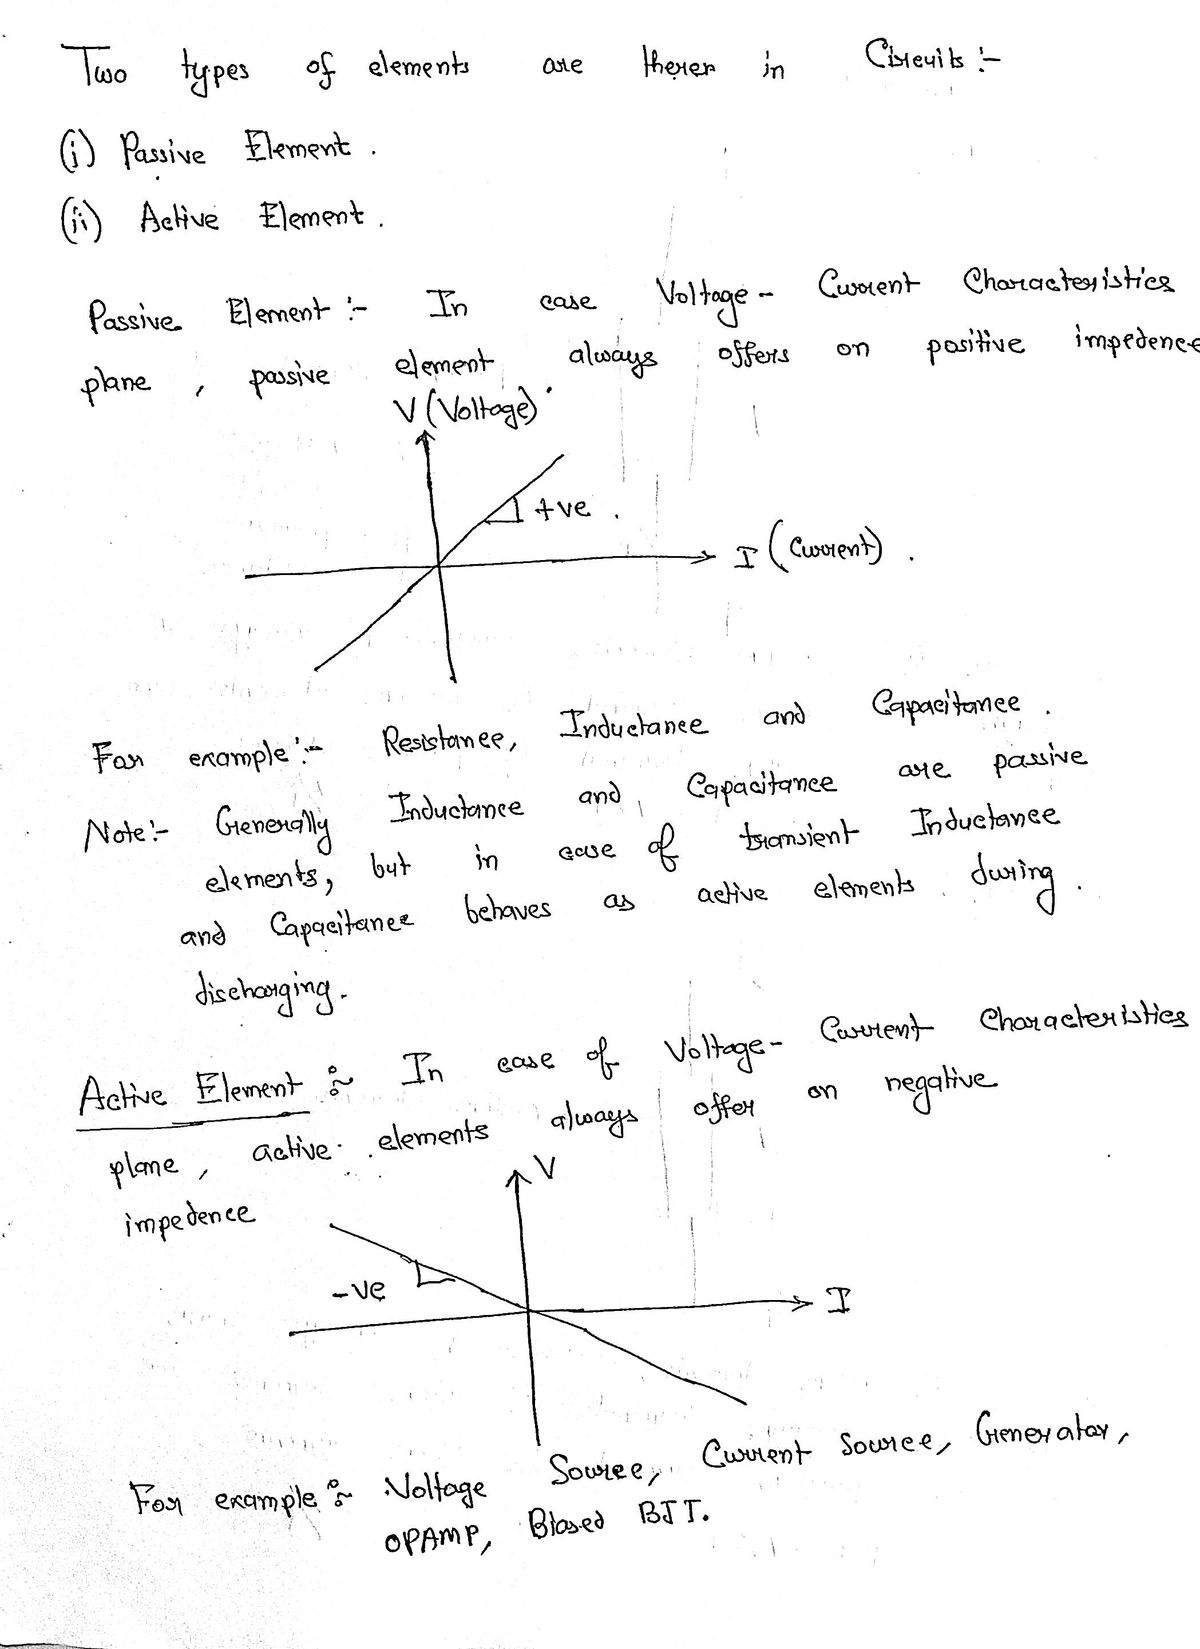 Two types of elements are therer in Circuits :-
(i) Passive Element .
(ii) Active Element .
Passive Element :- In case Voltage - Current Characteristics
plane , passive element always offers on positive impedence
V (Voltage)
+ve .
I (Current) .
For example :- Resistance, Inductance and Capacitance .
Note :- Generally Inductance and Capacitance are passive
elements, but in case of transient Inductance
and Capacitance behaves as active elements during .
discharging .
Active Element :~ In case of Voltage - Current Characteristics
plane , active elements always offer on negative
impedence
V
-ve
I
For example :~ Voltage Source, Current Source, Generator,
OPAMP, Biased BJT.